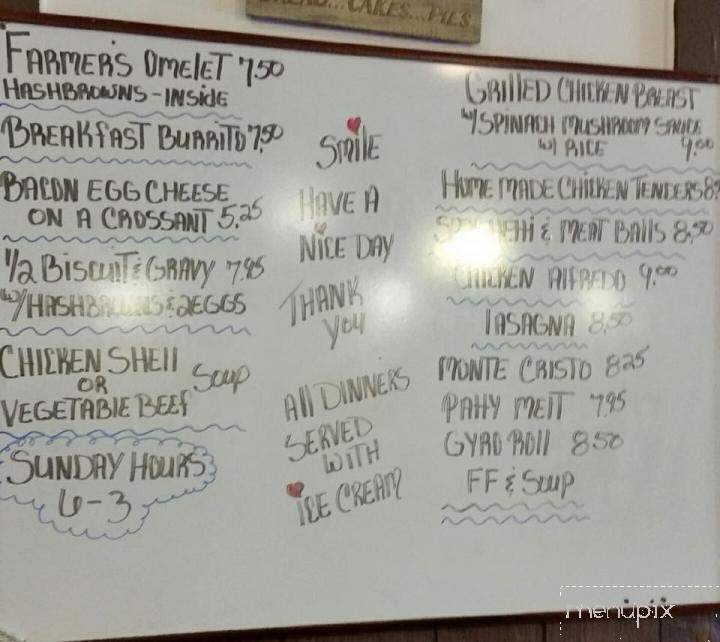 BREAD...CAKES...PIES
FARMER'S OMELET 7.50
HASHBROWNS - INSIDE
BREAKFAST BURRITO 7.50
BACON EGG CHEESE
ON A CROSSANT 5.25
1/2 BISCUIT & GRAVY 7.95
W/HASHBROWNS & 2EGGS
CHICKEN SHELL
OR
VEGETABLE BEEF
SOUP
SUNDAY HOURS
6-3
SMILE
HAVE A
NICE DAY
THANK
YOU
All DINNERS
SERVED
WITH
ICE CREAM
GRILLED CHICKEN BREAST
W/SPINACH MUSHROOM SAUCE
W/ RICE 9.00
HOME MADE CHICKEN TENDERS
SPAGHEHI & MEAT BALLS 8.50
CHICKEN ALFREDO 9.00
LASAGNA 8.50
MONTE CRISTO 8.25
PATTY MELT 7.95
GYRO ROLL 8.50
FF & SOUP
menupix